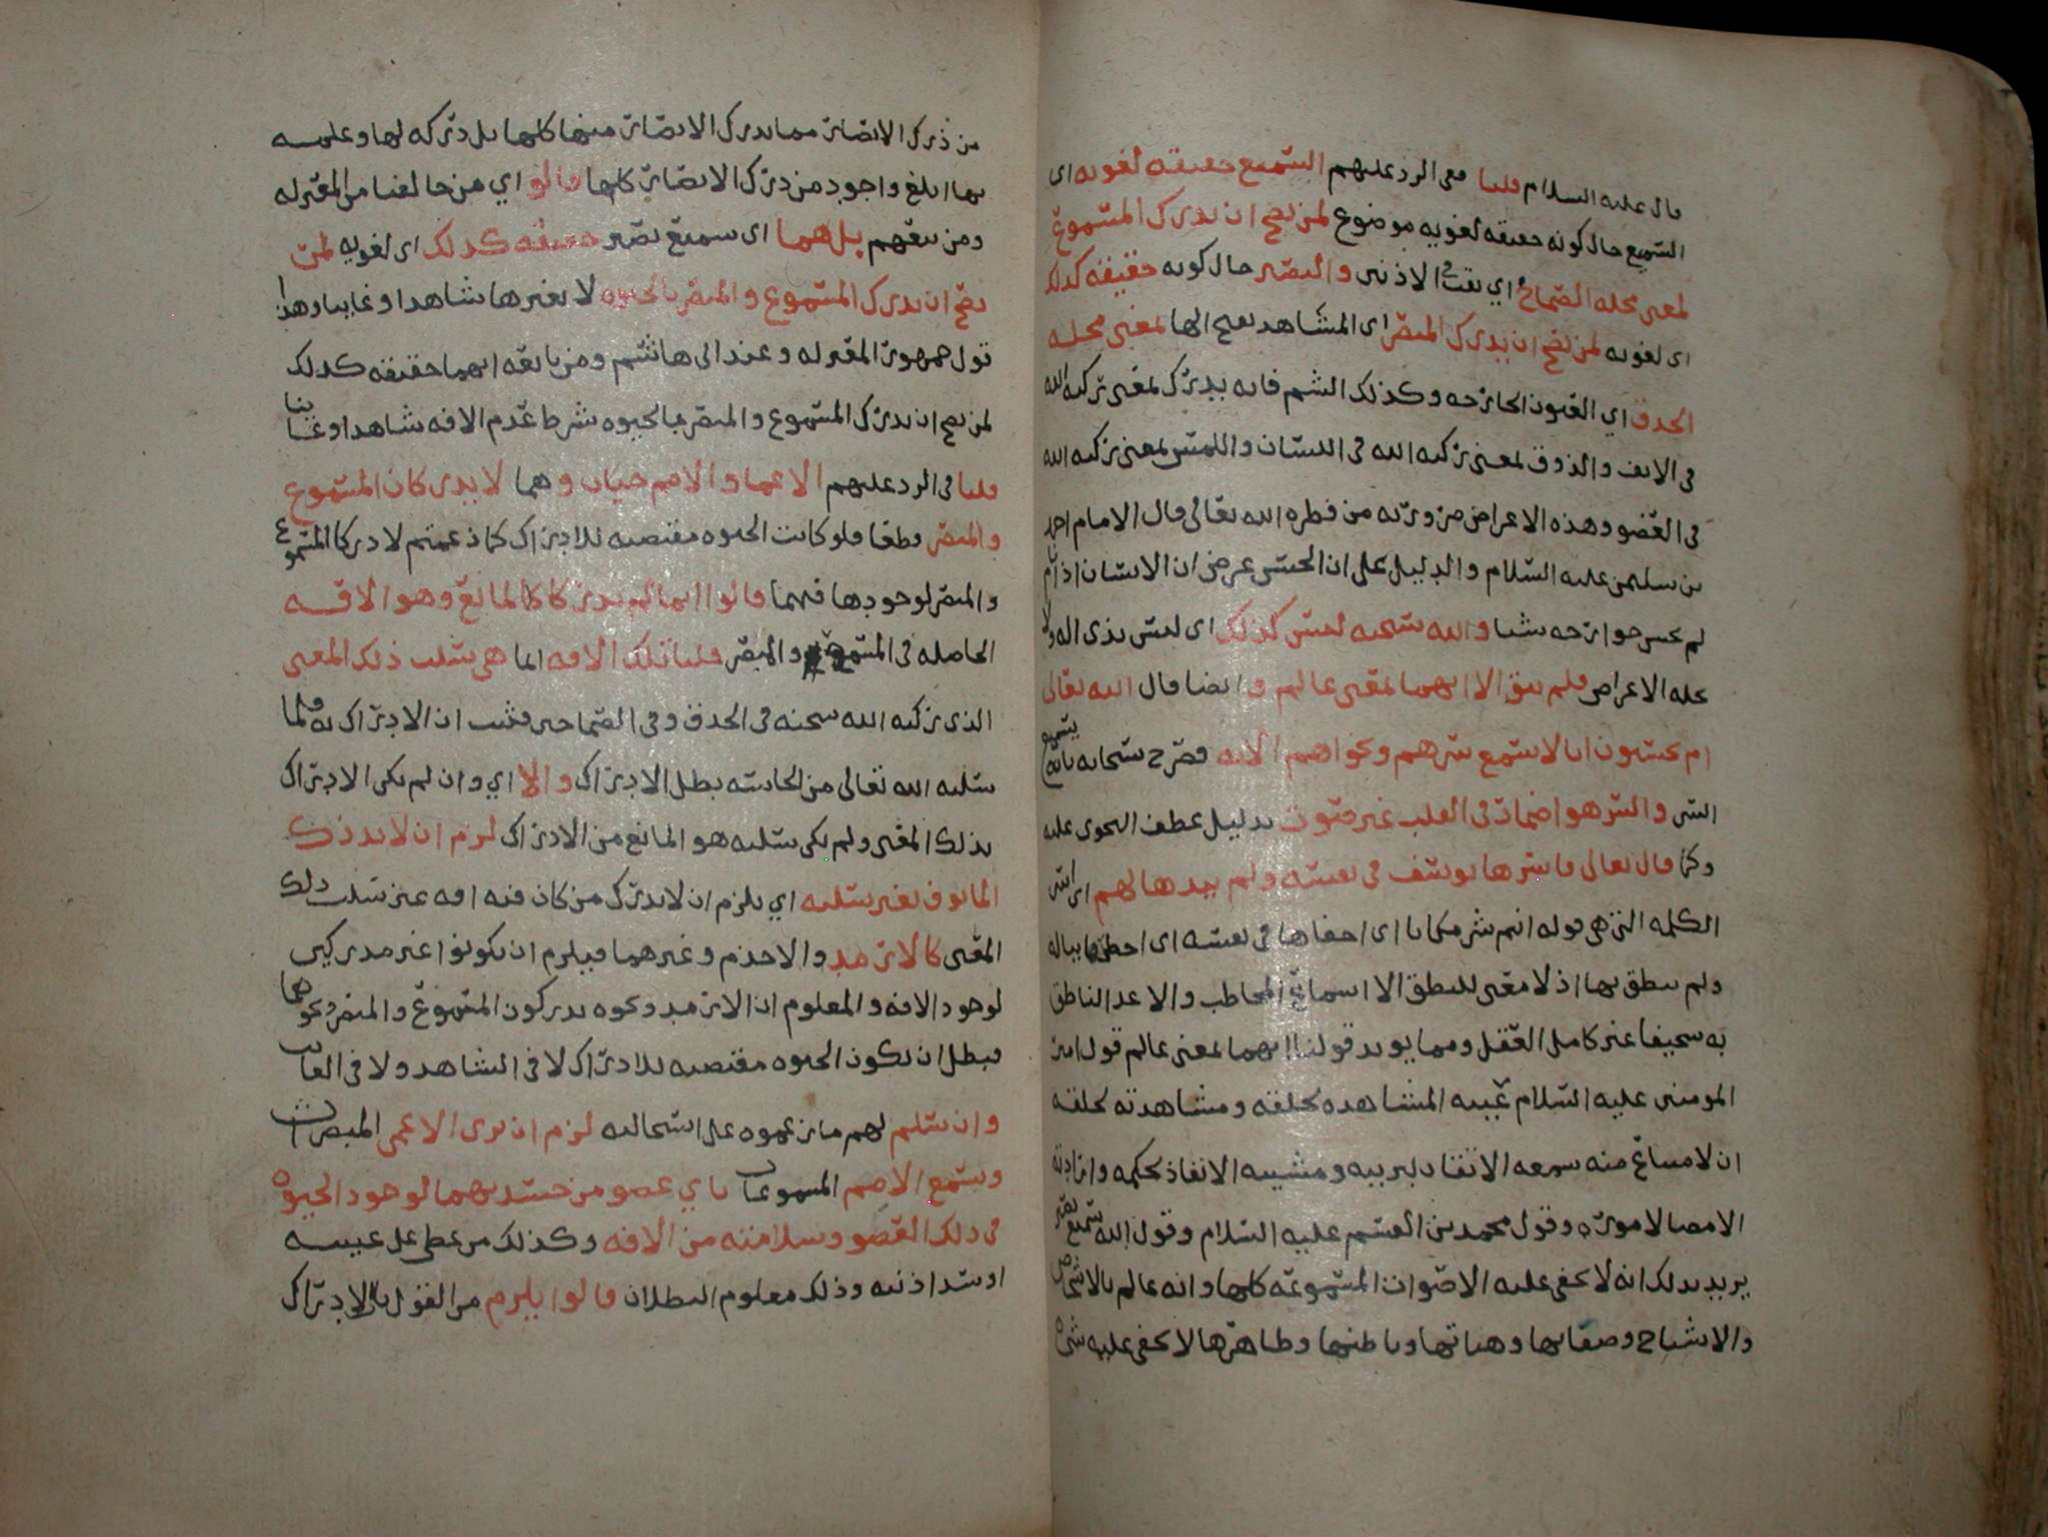 قال عليه السلام قلنا في الرد عليهم السميع حقيقة لغويه اى
السميع حال كونه حقيقه لغويه موضوع لمن يصح ان يدرك المسموع
لمعنى محله الصماخ اي ثقب الاذنين والبصير حال كونه حقيقه كذلك
اى لغويه لمن يصح ان يدرك المبصر اى المشاهد بفتح الها لمعنى محله
الحدق اي العيون الجارحه وكذلك الشم فانه يدرك لمعنى تركبه الله
في الانف والذوق لمعنى تركبه الله في اللسان واللمس لمعنى تركبه الله
في العضو وهذه الاعراض ضروريه من فطره الله تعالى قال الامام احمد
بن سليمن عليه السلام والدليل على ان الحس عرض ان الانسان اذا نام
لم تحس جوارحه شيا والله سبحنه ليس كذلك اى ليس بذى اله ولا
تحله الاعراض فلم يبق الا انهما بمعنى عالم وايضا قال الله تعالى
ام يحسبون انا لا نسمع سرهم ونجواهم الايه فصرح سبحانه بانه يسمع
السر والسر هو اضمار في القلب غير صوت بدليل عطف النجوى عليه
وكما قال تعالى فاسرها يوسف في نفسه ولم يبدها لهم اى اسر
الكلمه التي هي قوله انتم شر مكانا اى اخفاها في نفسه اى اخطرها بباله
ولم ينطق بها اذ لا معنى للنطق الا اسماع المخاطب والا عد الناطق
به سخيفا غير كامل العقل ومما يويد قولنا انهما بمعنى عالم قول امير
المومنين عليه السلام غيبه المشاهده لخلقه ومشاهدته لخلقه
ان لا امتناع منه سمعه الاتقان لبريته ومشيته الانفاذ لحكمه وارادته
الامضا لاموره وقول محمد بن القسم عليه السلام وقول الله سميع بصير
يريد بذلك انه لا يخفى عليه الاصوات المسموعه كلها وانه عالم بالاشخاص
والاشباح وصفاتها وهياتها وباطنها وظاهرها لا يخفى عليه شي
من درك الابصار مما يدرك الابصار منها كلها بل دركه لها وعلمه
بها ابلغ واجود من درك الابصار كلها قالوا اي من خالفنا من المعتزله
ومن تبعهم بل هما اى سميع بصير حقيقه كذلك اى لغويه لمن
يصح ان يدرك المسموع والمبصر بالحيوه لا بغيرها شاهدا وغايبا وهذا
قول جمهور المعتزله وعند ابى هاشم ومن تابعه انهما حقيقه كذلك
لمن يصح ان يدرك المسموع والمبصر بالحيوه شرط عدم الافه شاهدا وغايبا
قلنا في الرد عليهم الاعما والاصم حيان وهما لا يدركان المسموع
والمبصر قطعا فلو كانت الحيوه مقتضيه للادراك كما زعمتم لادركا المسموع
والمبصر لوجودها فيهما قالوا انما لم يدركا للمانع وهو الافه
الحاصله في المسمع والمبصر قلنا تلك الافه انما هي سلب ذلك المعنى
الذى تركبه الله سبحنه في الحدق وفي الصماخين فثبت ان الادراك به فلما
سلبه الله تعالى من الحاسه بطل الادراك والا اي وان لم يكن الادراك
بذلك المعنى ولم يكن سلبه هو المانع من الادراك لزم ان لا يدرك
المأوف بغير سلبه اي يلزم ان لا يدرك من كان فيه افه غير سلب ذلك
المعنى كالارمد والاجذم وغيرهما فيلزم ان يكونوا غير مدركين
لوجود الافه والمعلوم ان الارمد ونحوه يدركون المسموع والمبصر ونحوهما
فبطل ان تكون الحيوه مقتضيه للادراك لا في الشاهد ولا في الغايب
وان سلم لهم ما زعموه على استحالته لزم ان يرى الاعمى المبصرات
ويسمع الاصم المسموعات باي عضو من جسديهما لوجود الحيوه
في ذلك العضو وسلامته من الافه وكذلك من غطى على عينيه
او سد اذنيه وذلك معلوم البطلان قالوا يلزم من القول بان الادراك